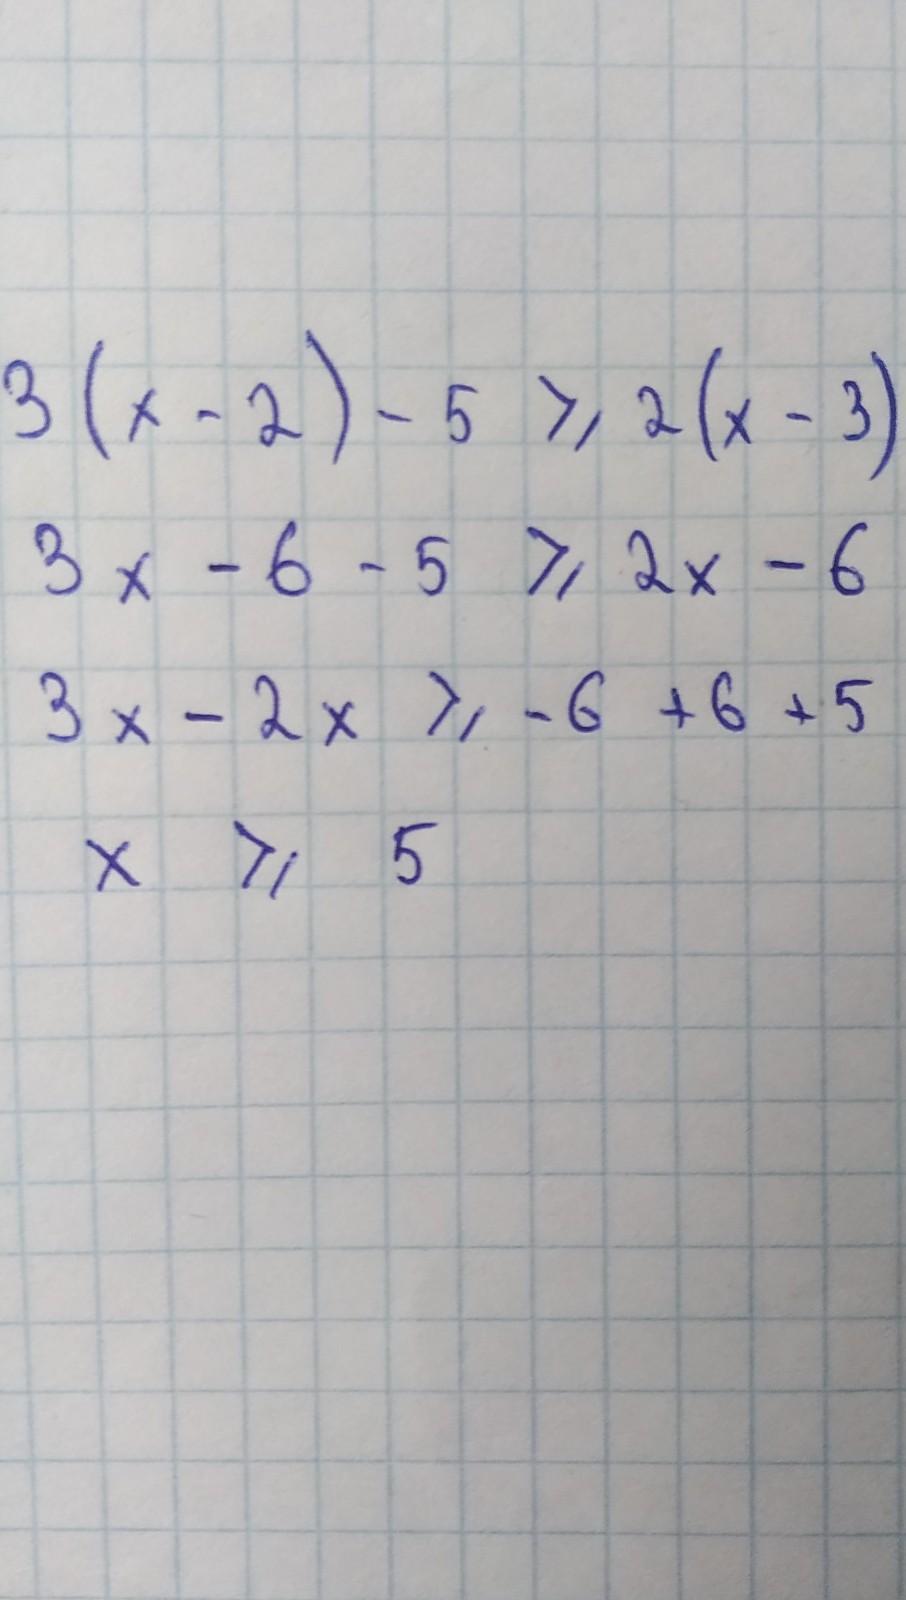 3(x - 2) - 5 ⩾ 2(x - 3)
3x - 6 - 5 ⩾ 2x - 6
3x - 2x ⩾ -6 + 6 + 5
x ⩾ 5